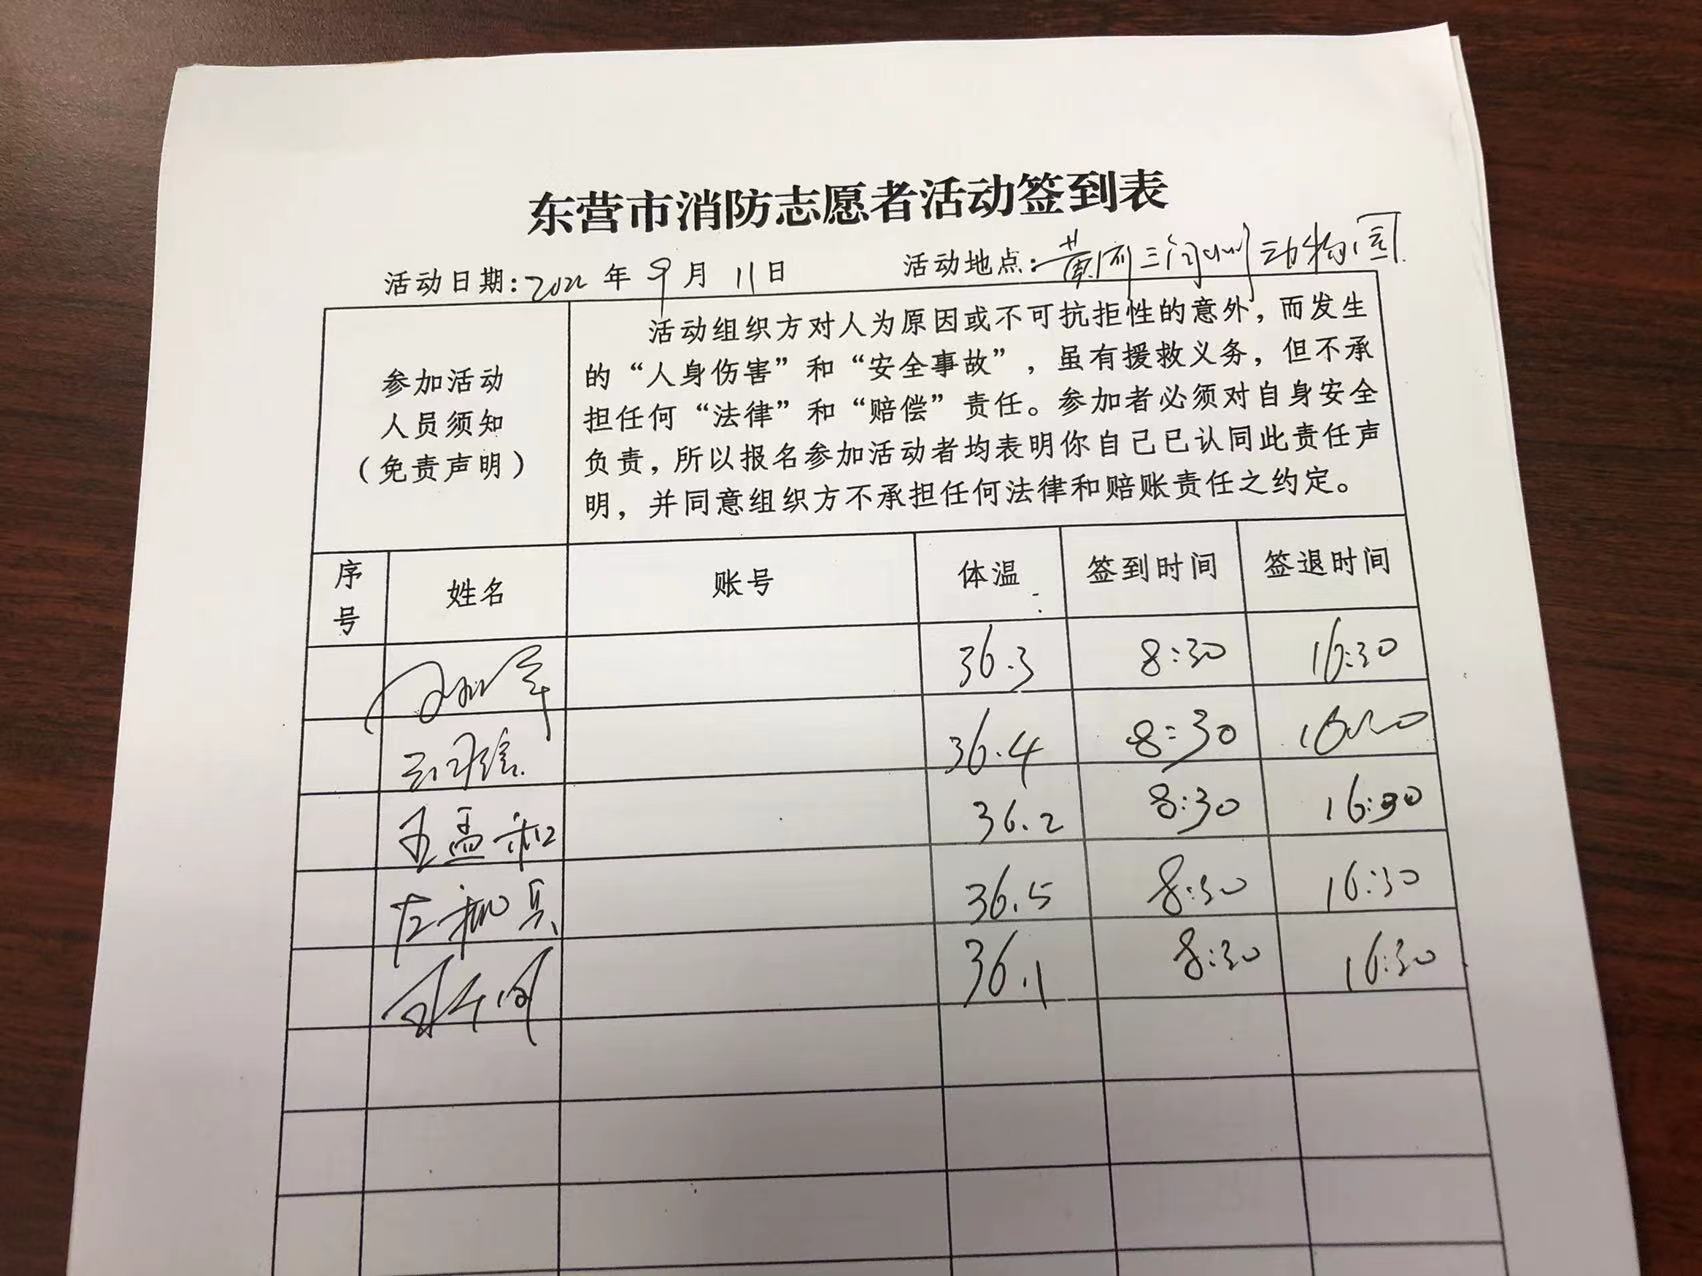 东营市消防志愿者活动签到表
活动日期:2022年9月11日 活动地点:黄河三角洲动物园
参加活动
人员须知
(免责声明)
活动组织方对人为原因或不可抗拒性的意外,而发生
的“人身伤害”和“安全事故”,虽有援救义务,但不承
担任何“法律”和“赔偿”责任。参加者必须对自身安全
负责,所以报名参加活动者均表明你自己已认同此责任声
明,并同意组织方不承担任何法律和赔账责任之约定。
序号 姓名 账号 体温 签到时间 签退时间
36.3 8:30 16:30
36.4 8:30
王孟和 36.2 8:30 16:30
36.5 8:30 16:30
36.1 8:30 16:30